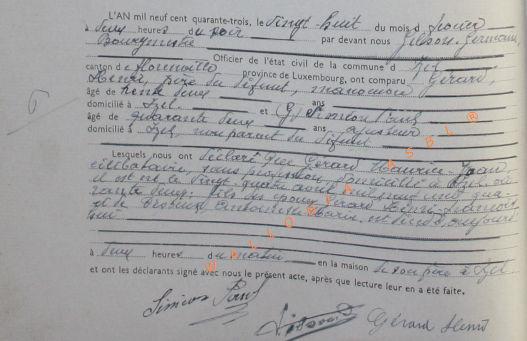 L'AN mil neuf cent quarante-trois, le vingt-huit du mois de
à deux heures du soir par devant nous Gilson, Germain,
Bourgmestre
Officier de l'état civil de la commune d'Izel
canton de Florenville province de Luxembourg, ont comparu Gérard,
Henri, père du défunt,
âgé de trente deux ans
domicilié à Izel et
âgé de quarante deux ans
domicilié à Izel, non parent du défunt
Lesquels nous ont déclaré que Gérard Maurice Jean
célibataire, sans profession, domicilié à Izel, où
il est né le vingt quatre août mil neuf cent qua-
rante deux, fils des époux Gérard Henri
et de Marie, est décédé, aujourd'
hui
à deux heures du matin en la maison de son père à Izel
et ont les déclarants signé avec nous le présent acte, après que lecture leur en a été faite.
Gérard Henri